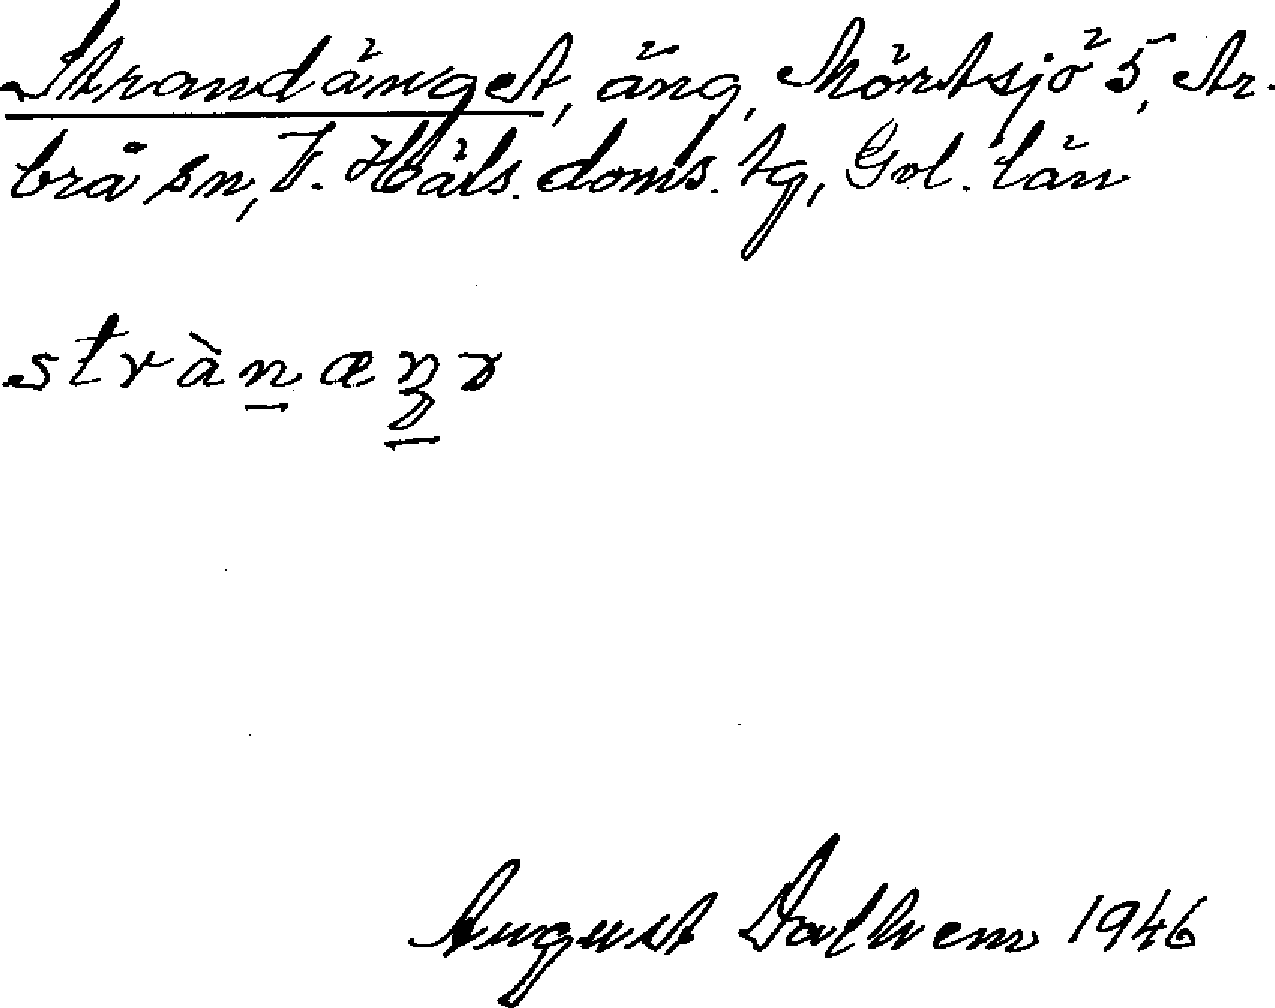 Strandänget, äng, Mörtsjö 5, Ar-
brå sn, V. Häls. doms. tg, Gvl. län
stràn æŋə
August Dalhem 1946